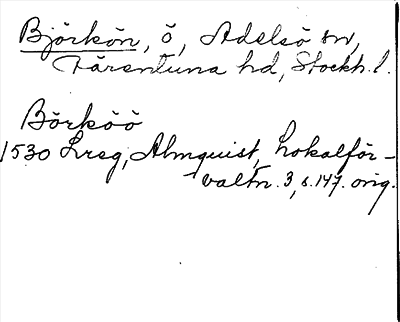 Björkön, ö, Adelsö sn,
Färentuna hd, Stockh. l.
Börköö
1530 Lrsg, Almquist, Lokalför-
valtn. 3, s. 147. orig.